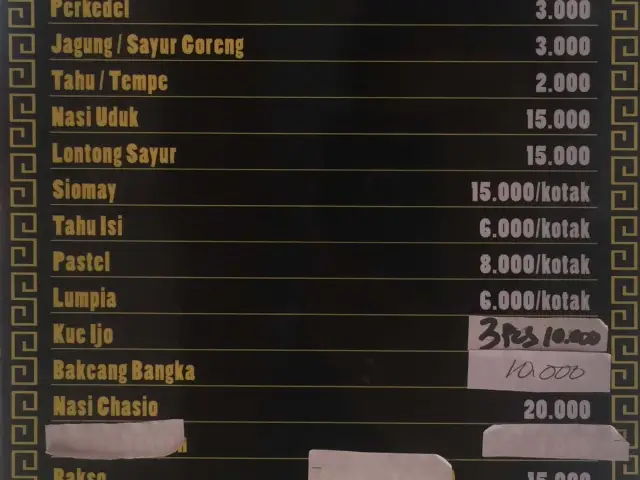 Perkedel 3.000
Jagung / Sayur Goreng 3.000
Tahu / Tempe 2.000
Nasi Uduk 15.000
Lontong Sayur 15.000
Siomay 15.000/kotak
Tahu Isi 6.000/kotak
Pastel 8.000/kotak
Lumpia 6.000/kotak
Kue Ijo 3 Pcs 10.000
Bakcang Bangka 10.000
Nasi Chasio 20.000
Bakso 15.000